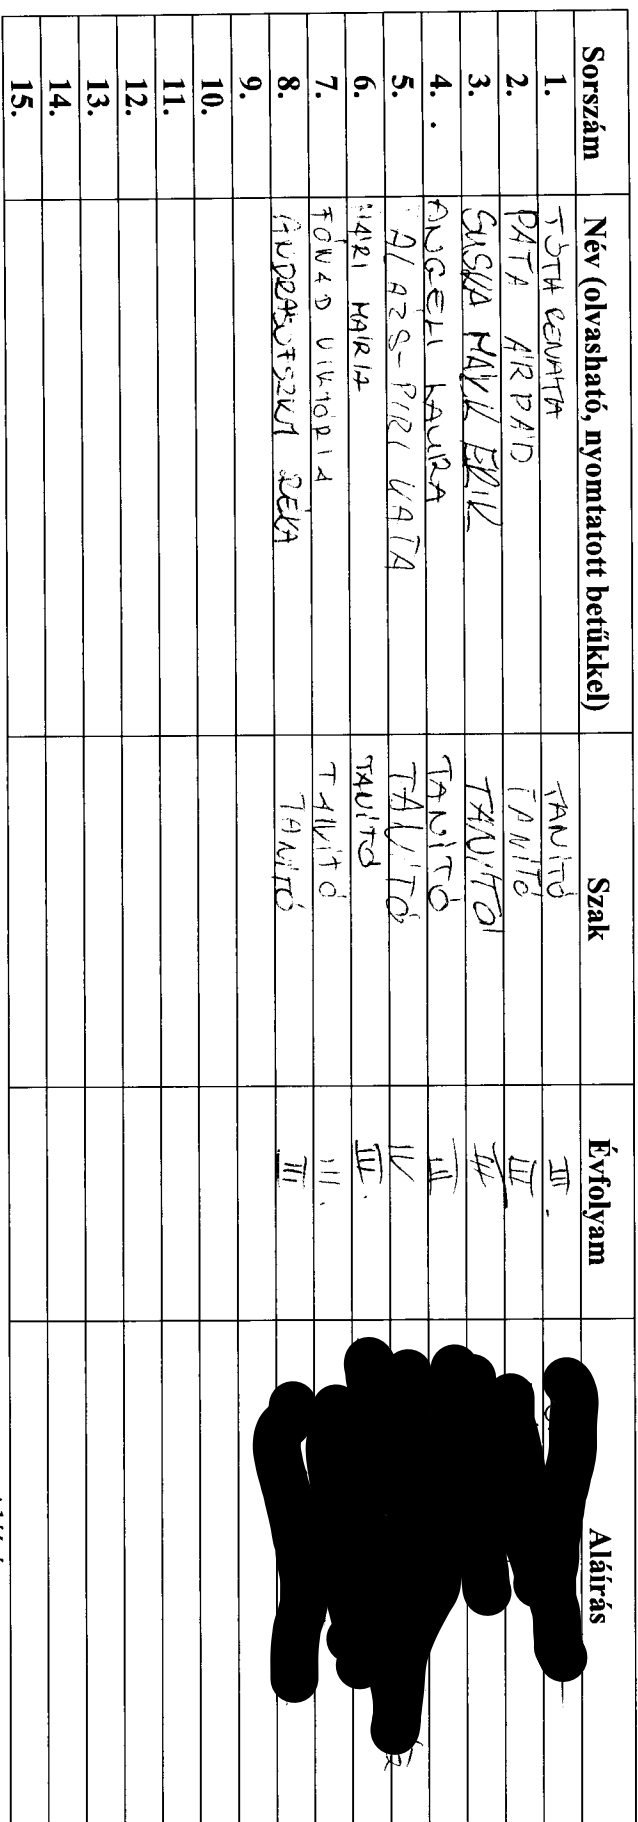 Sorszám Név (olvasható, nyomtatott betűkkel) Szak Évfolyam Aláírás
1. TÓTH RENÁTA TANÍTÓ III.
2. PATA ÁRPÁD TANÍTÓ III
3. SUSKA MÁRK ERIK TANÍTÓ III
4. ANGELI LAURA TANÍTÓ III
5. BALÁZS-PIRI KATA TANÍTÓ IV
6. MÁRIA TANÍTÓ III.
7. FÓNAD VIKTÓRIA TANÍTÓ III.
8. RÉKA TANÍTÓ III
9.
10.
11.
12.
13.
14.
15.